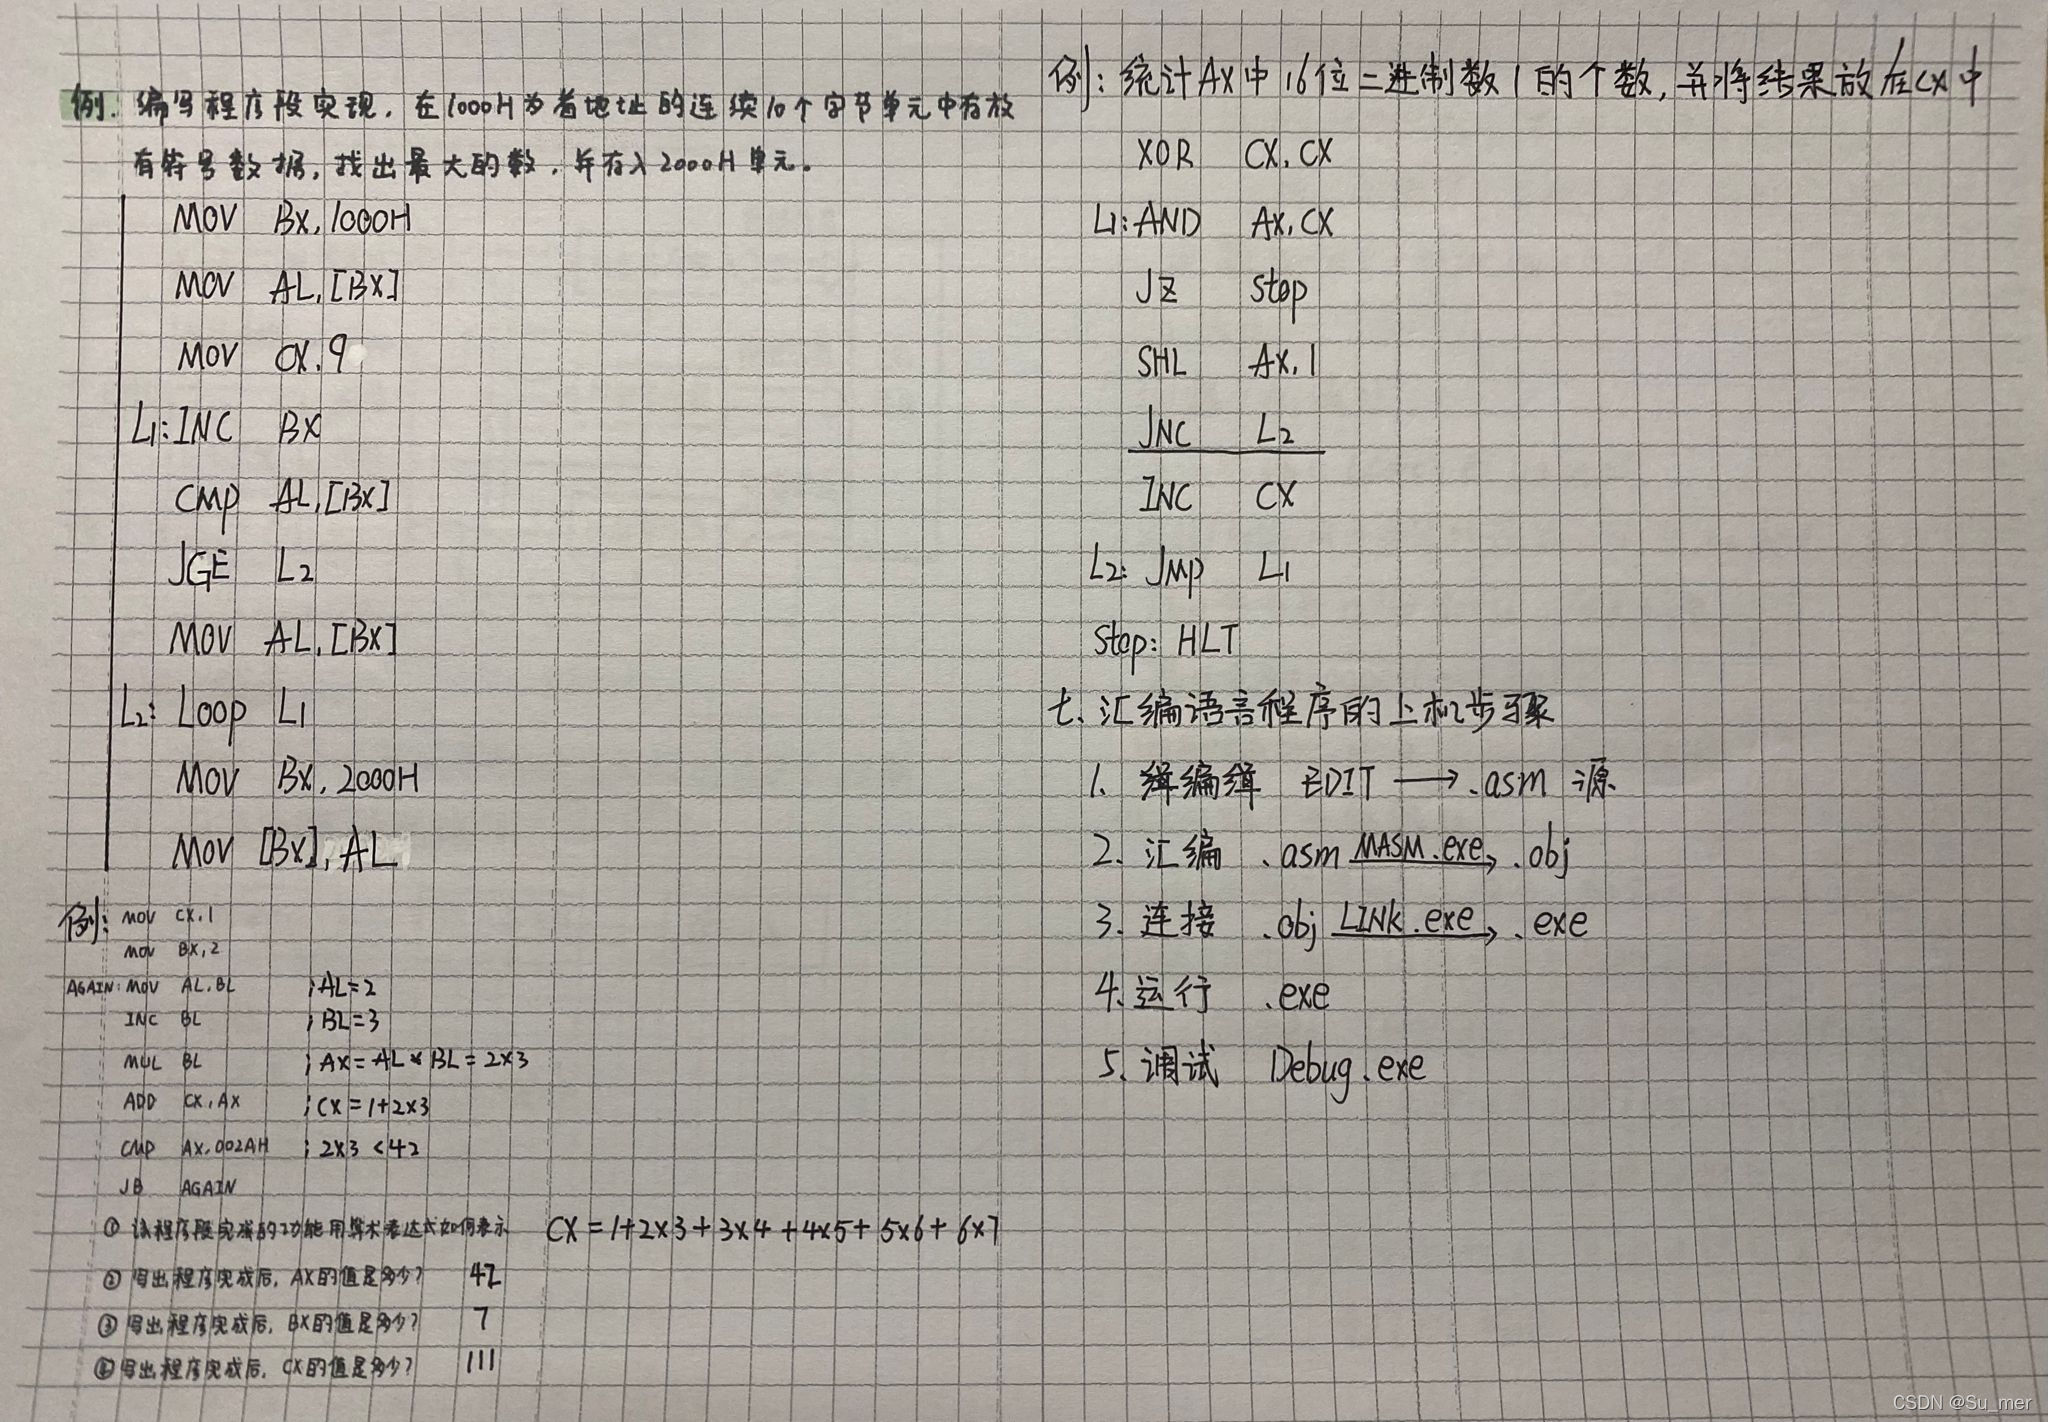 例：编写程序段实现，在1000H为首地址的连续10个字节单元中存放
有符号数据，找出最大的数，并存入2000H单元。
MOV BX,1000H
MOV AL,[BX]
MOV CX,9
L1:INC BX
CMP AL,[BX]
JGE L2
MOV AL,[BX]
L2: Loop L1
MOV BX,2000H
MOV [BX],AL
例：MOV CX,1
MOV BX,2
AGAIN:MOV AL,BL ;AL=2
INC BL ;BL=3
MUL BL ;AX=AL*BL=2×3
ADD CX,AX ;CX=1+2×3
CMP AX,002AH ;2×3<42
JB AGAIN
① 该程序段完成的功能用算术表达式如何表示 CX=1+2×3+3×4+4×5+5×6+6×7
② 写出程序完成后，AX的值是多少？ 42
③ 写出程序完成后，BX的值是多少？ 7
④ 写出程序完成后，CX的值是多少？ 111
例：统计AX中16位二进制数1的个数，并将结果放在CX中
XOR CX,CX
L1:AND AX,CX
JZ Stop
SHL AX,1
JNC L2
INC CX
L2: JMP L1
Stop: HLT
七、汇编语言程序的上机步骤
1. 编缉 EDIT → .asm 源
2. 汇编 .asm MASM.exe→ .obj
3. 连接 .obj LINK.exe→ .exe
4. 运行 .exe
5. 调试 Debug.exe
CSDN @Su_mer